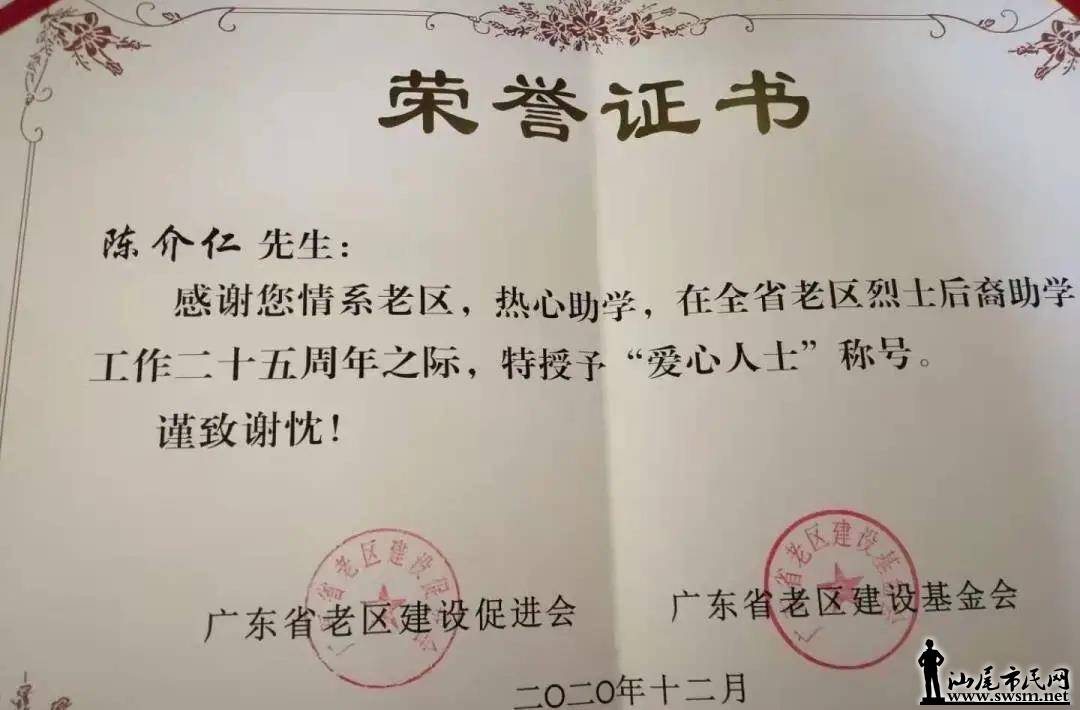 荣誉证书
陈介仁 先生：
感谢您情系老区，热心助学，在全省老区烈士后裔助学
工作二十五周年之际，特授予“爱心人士”称号。
谨致谢忱！
广东省老区建设促进会
广东省老区建设促进会
广东省老区建设基金会
广东省老区建设基金会
二〇二〇年十二月
汕尾市民网
www.swsm.net